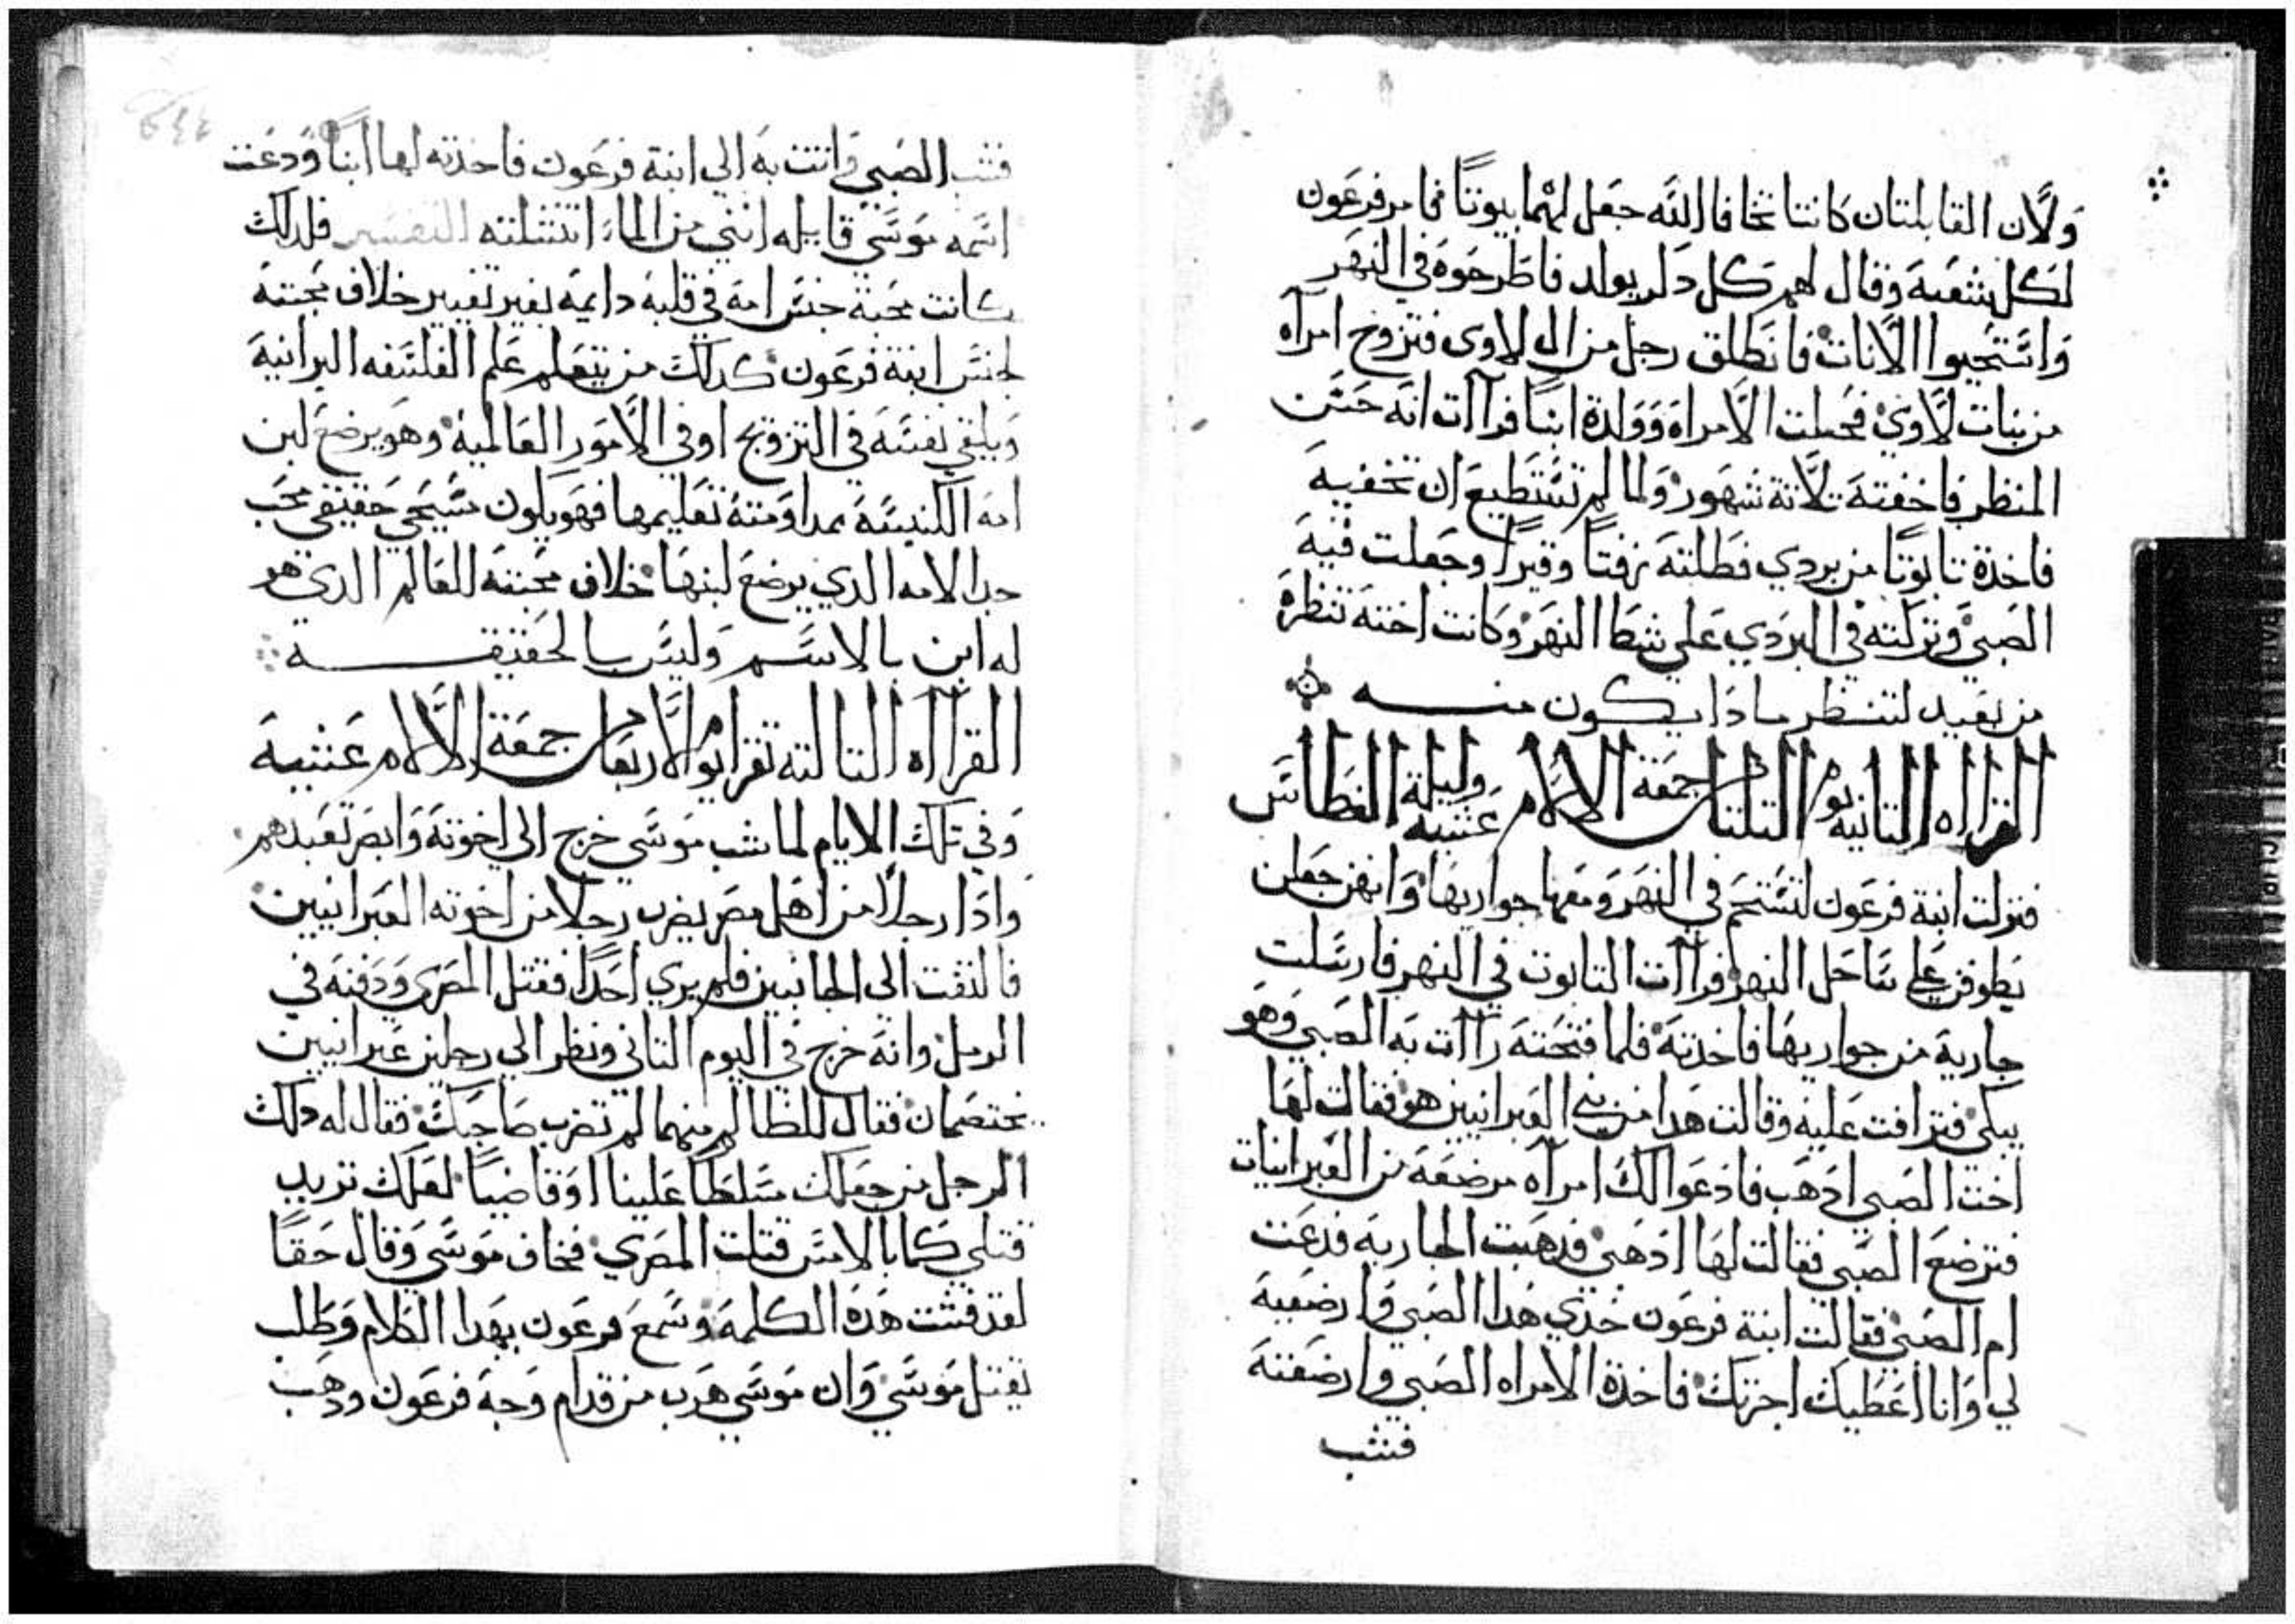 ولان القابلتان كانتا تخافا الله جعل لهما بيوتا فامر فرعون
لكل شعبه وقال لهم كل دكر يولد فاطرحوه في النهر
واستحيوا الاناث فانطلق رجل من ال لاوى فتزوج امرآه
من بنات لاوي فحبلت الامراه وولدة ابنا فرآات انه حسن
المنظر فاخفته تلاتة شهور ولما لم تستطيع ان تخفيه
فاخدة تابوتا من بردي فطلته زفتا وقيرا وجعلت فيه
الصبي وتركته في البردي علي شط النهر وكانت اخته تنظره
من بعيد لتنظر مادا يكون منه
القرااه التانيه يوم التلتا من جمعة الالام عشية وليلة الغطاس
فنزلت ابنة فرعون لتستحم في النهر ومعها جواريها وانهن جعلن
يطوفن علي ساحل النهر فرآات التابوت في النهر فارسلت
جارية من جواريها فاخدته فلما فتحته رآات به الصبي وهو
يبكي فتراافت عليه وقالت هدا من بني العبرانيين هو فقالت لها
اخت الصبي ادهب فادعوا لك امرآه مرضعة من العبرانيات
فترضع الصبي فقالت لها ادهبي فدهبت الجاريه فدعت
ام الصبي فقالت ابنة فرعون خدي هدا الصبي وارضعيه
لي وانا اعطيك اجرتك فاخدة الامراه الصبي وارضعته
فشب
فشب الصبي واتت به الي ابنة فرعون فاخدته لها ابنا ودعت
اسمه موسي قايله انني من الماء انتشلته التفسير فلدلك
كانت محبة جنس امه في قلبه دايمة بغير تغيير خلاف محبته
لجنس ابنة فرعون كدلك من يتعلم علم الفلسفه البرانية
ويلقي نفسه في التزويج او في الامور العالمية وهو يرضع لبن
امه الكنيسة بمداومته تعليمها فهو يكون مسيحي حقيقي محب
جدا لامه الدي يرضع لبنها خلاف محبته للعالم الدي هو
له ابن بالاسم وليس بالحقيقه
القرآاه التالته تقرا يوم الاربعا من جمعة الالام عشية
وفي تلك الايام لما شب موسي خرج الي اخوته وابصر تعبدهم
وادا رجلا من اهل مصر يضرب رجلا من اخوته العبرانيين
فالتفت الي الجانبين فلم يري احدا فقتل المصرى ودفنه في
الرمل وانه خرج في اليوم التاني ونظر الي رجلين عبرانيين
يختصمان فقال للظالم منهما لم تضرب صاحبك فقال له دلك
الرجل من جعلك مسلطا علينا او قاضيا لعلك تريد
قتلي كما بالامس قتلت المصري فخاف موسي وقال حقا
لقد فشت هده الكلمه وسمع فرعون بهدا الكلام وطلب
يقتل موسي وان موسي هرب من قدام وجه فرعون ودهب